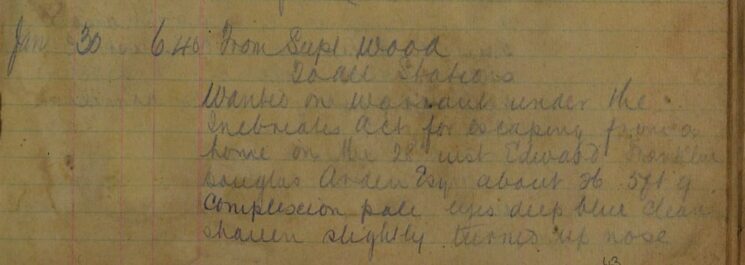 Jan 30 640 From Supt Wood
To all Stations
Wanted on warrant under the
Inebriates Act for escaping from a
home on the 28 inst Edward Franklin
Douglas Arden Esq about 36 5ft 9
Complexion pale eyes deep blue clean
shaven slightly turned up nose